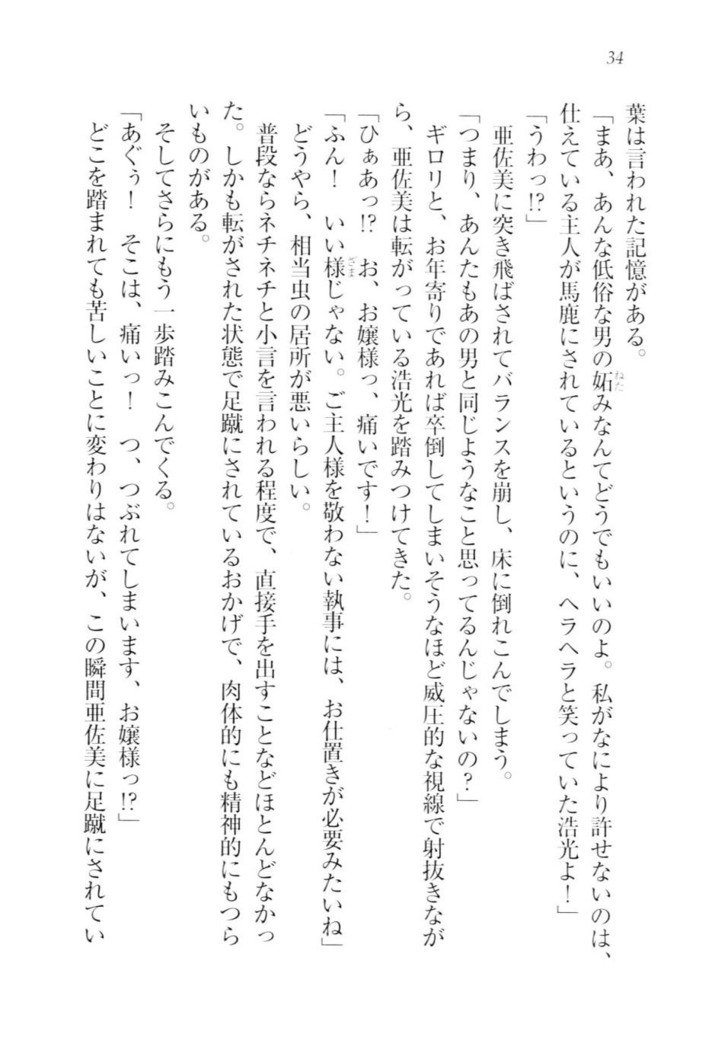 34
葉は言われた記憶がある。
「まあ、あんな低俗な男の妬みなんてどうでもいいのよ。私がなにより許せないのは、
仕えている主人が馬鹿にされているというのに、ヘラヘラと笑っていた浩光よ！」
「うわっ!?」
亜佐美に突き飛ばされてバランスを崩し、床に倒れこんでしまう。
「つまり、あんたもあの男と同じようなこと思ってるんじゃないの？」
ギロリと、お年寄りであれば卒倒してしまいそうなほど威圧的な視線で射抜きなが
ら、亜佐美は転がっている浩光を踏みつけてきた。
「ひぁあっ!?　お、お嬢様っ、痛いです！」
「ふん！　いい様じゃない。ご主人様を敬わない執事には、お仕置きが必要みたいね」
どうやら、相当虫の居所が悪いらしい。
普段ならネチネチと小言を言われる程度で、直接手を出すことなどほとんどなかっ
た。しかも転がされた状態で足蹴にされているおかげで、肉体的にも精神的にもつら
いものがある。
そしてさらにもう一歩踏みこんでくる。
「あぐぅ！　そこは、痛いっ！　つ、つぶれてしまいます、お嬢様っ!?」
どこを踏まれても苦しいことに変わりはないが、この瞬間亜佐美に足蹴にされてい